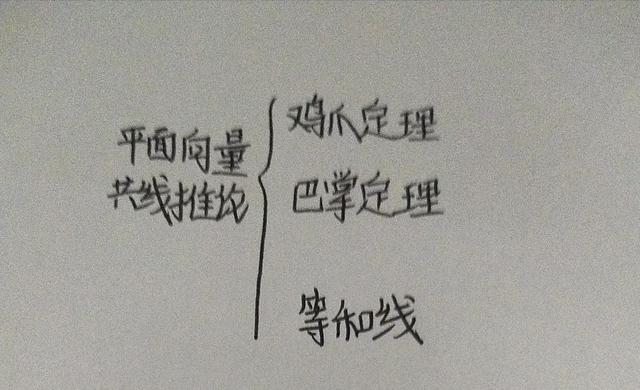 平面向量
共线推论
鸡爪定理
巴掌定理
等和线